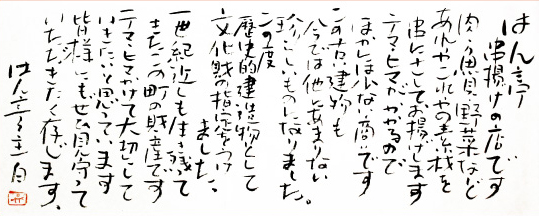 はん亭
串揚げの店です
肉や魚貝、野菜など
あれやこれやの素材を
串にさしてお揚げします
テマ・ヒマがかかるので
ほかには少ない商いです
この古い建物も
今では他にあまりない
珍らしいものになりました。
この度
歴史的建造物として
文化財の指定をうけ
ました。
一世紀近しも生き残って
きたこの町の財産です
テマ・ヒマかけて大切にして
いきたいと思っています
皆様にもぜひ見守って
いただきたく存じます。
はん亭主 白